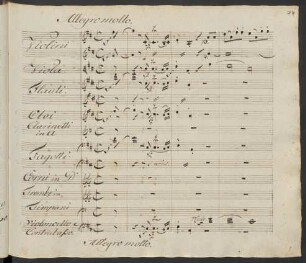 Allegro molto.
Violini
Viola
Flauti
Oboi
Clarinetti
in A
Fagotti
Corni in D
Trombe in
Timpani
Violoncello
Contrabasso
Allegro molto.